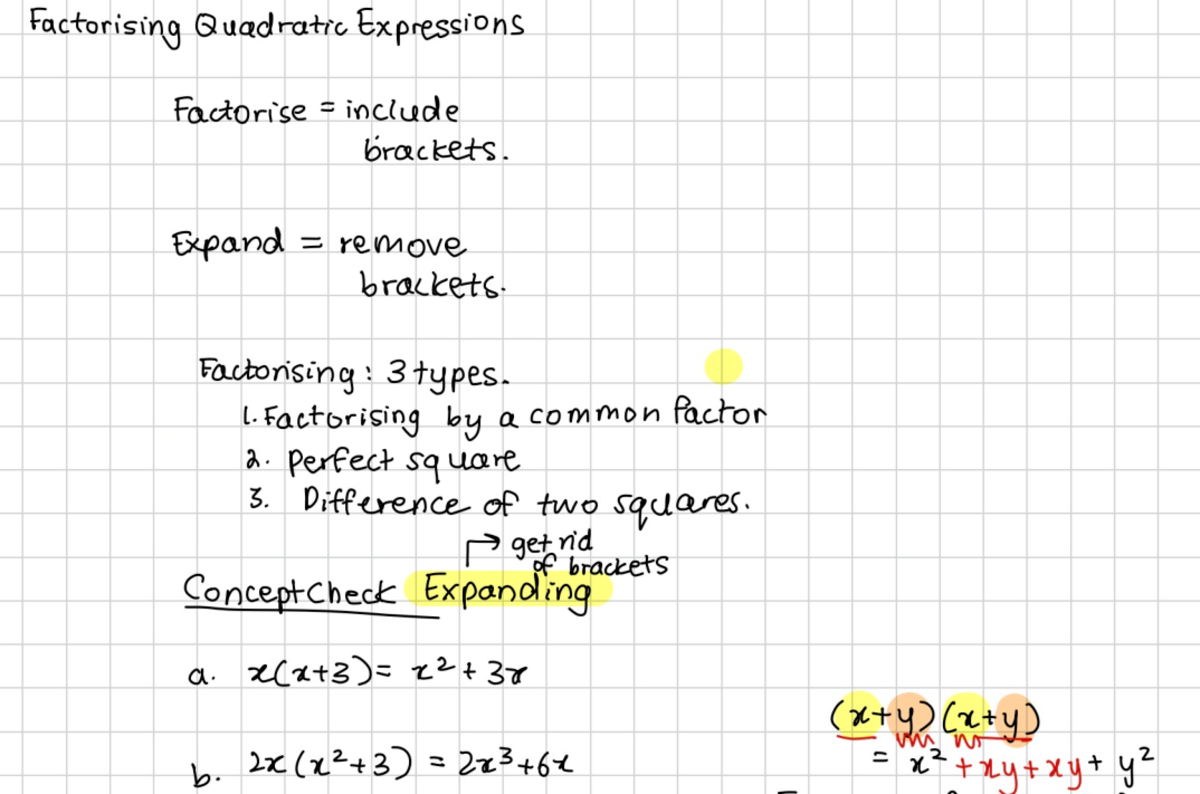 Factorising Quadratic Expressions
Factorise = include
brackets.
Expand = remove
brackets.
Factorising : 3 types.
1. Factorising by a common factor
2. Perfect square
3. Difference of two squares.
→ get rid
of brackets
Concept Check Expanding
a. x(x+3) = x² + 3x
b. 2x(x²+3) = 2x³+6x
(x+y)(x+y)
= x² + xy + xy + y²